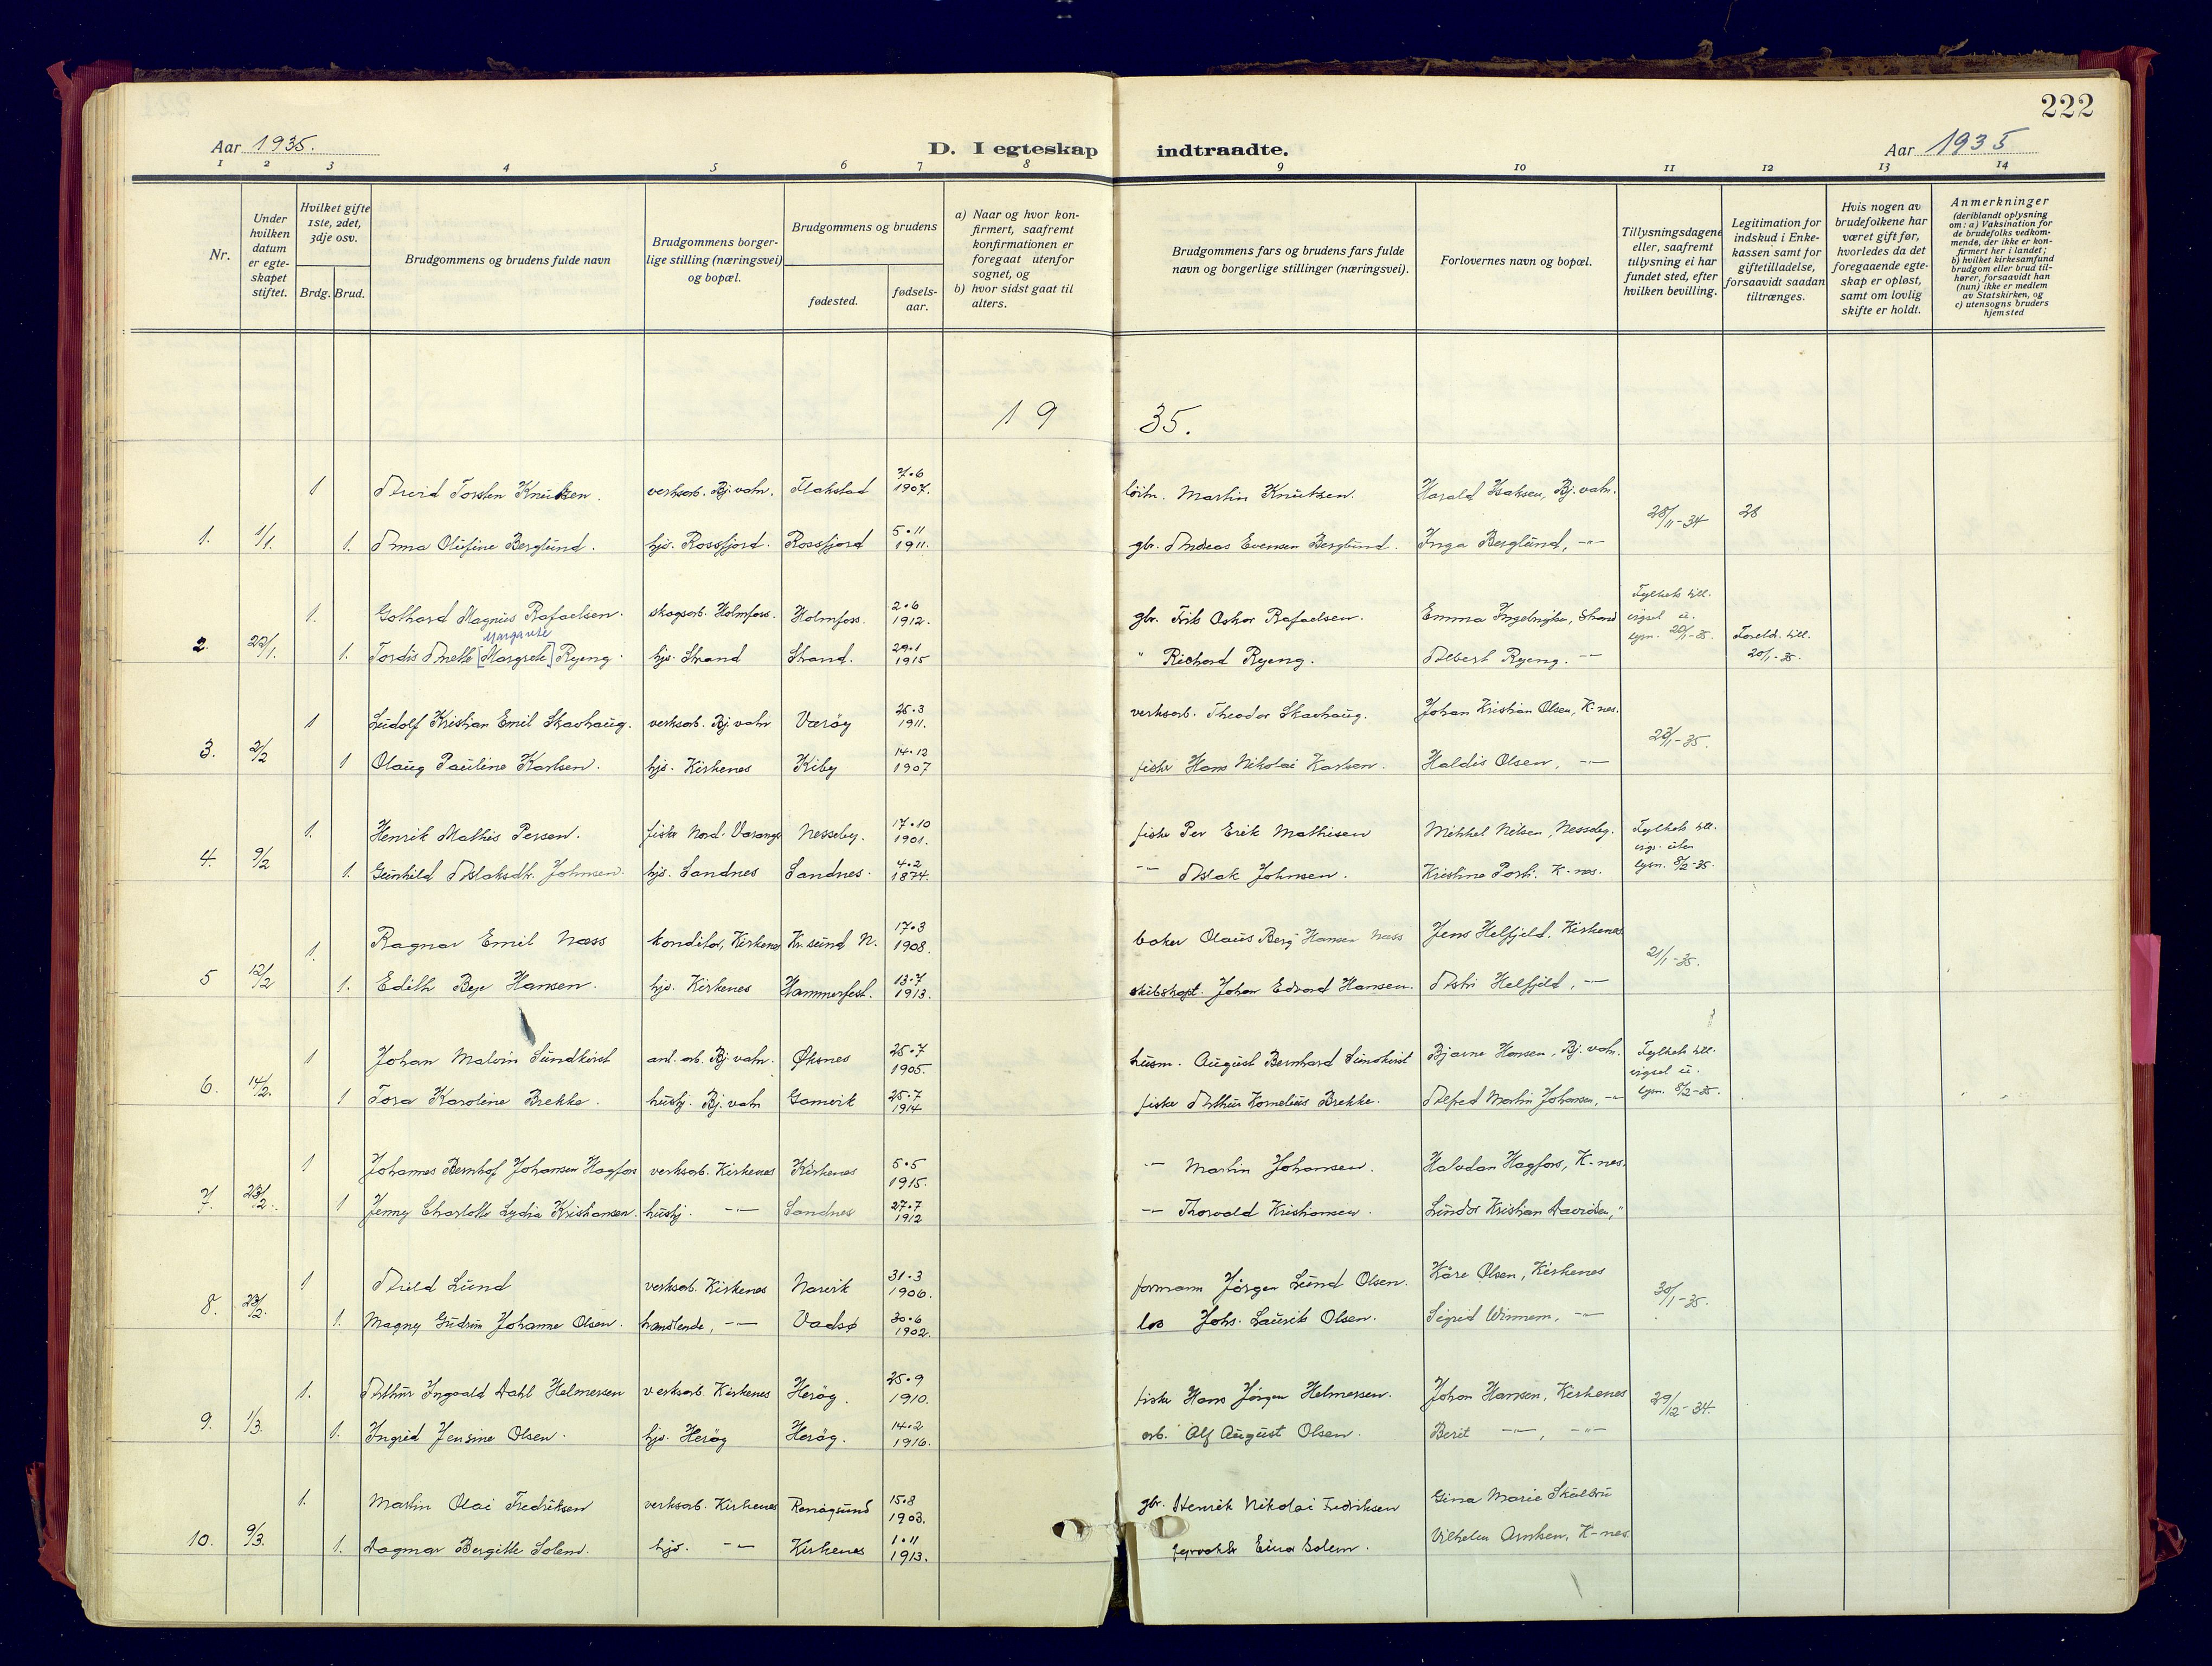 222
Aar 1935.
D. I egteskap indtraadte.
Aar 1935
1 2 3 4 5 6 7 8 9 10 11 12 13 14
Nr.
Under hvilken datum er egteskapet stiftet.
Hvilket gifte 1ste, 2det, 3dje osv.
Brdg. Brud.
Brudgommens og brudens fulde navn
Brudgommens borgerlige stilling (næringsvei) og bopæl.
Brudgommens og brudens
fødested.
fødselsaar.
a) Naar og hvor konfirmert, saafremt konfirmationen er foregaat utenfor sognet, og
b) hvor sidst gaat til alters.
Brudgommens fars og brudens fars fulde navn og borgerlige stillinger (næringsvei).
Forlovernes navn og bopæl.
Tillysningsdagene eller, saafremt tillysning ei har fundet sted, efter hvilken bevilling.
Legitimation for indskud i Enkekassen samt for giftetilladelse, forsaavidt saadan tiltrænges.
Hvis nogen av brudefolkene har været gift før, hvorledes da det foregaaende egteskap er opløst, samt om lovlig skifte er holdt.
Anmerkninger (deriblandt oplysning om: a) Vaksination for de brudefolks vedkommende, der ikke er konfirmert her i landet; b) hvilket kirkesamfund brudgom eller brud tilhører, forsaavidt han (hun) ikke er medlem av Statskirken, og c) utensogns bruders hjemsted
19 35.
1 Arvid Torsten Knutzen. verksarb. Bj.vatn. Flakstad 7.6 1907. Martin Knutzen. Harald Isaksen, Bj.vatn.
28/11-34 28
1. 1/1. 1. Anna Olufine Berglund. hjv. Rossfjord. Rossfjord 5.11 1911. gbr. Andreas Evensen Berglund. Inga Berglund, -"-
1. Gothard Magnus Rafaelsen. skogsarb. Holmfoss. Holmfoss. 2.6 1912. gbr. Frits Oskar Rafaelsen. Emma Ingebrigtsen, Strand
Fylkets till. vigsel u. lysn. 20/1-35. Foreldr. till. 20/1-35.
Margarete
2. 22/1. 1. Tordis Anette [Margrete] Ryeng. hjv. Strand Strand. 29.1 1915 " Richard Ryeng. Albert Ryeng. -"-
1 Ludolf Kristian Emil Skavhaug. verksarb. Bj.vatn Værøy 25.3 1911. verksarb. Theodor Skavhaug. Johan Kristian Olsen, K-nes.
23/1-35.
3. 2/2 1 Olaug Pauline Karlsen. hjv. Kirkenes Kiby 14.12 1907 fisker Hans Nikolai Karlsen. Haldis Olsen, -"-
1. Henrik Mathis Persen. fisker Nord-Varanger Nesseby. 17.10 1901. fisker Per Erik Mathisen Mikkel Nilsen, Nesseby.
Fylkets till. vigs. uten lysn. 8/2-35.
4. 9/2 1. Gunhild Aslaksdtr. Johnsen. hjv. Sandnes Sandnes. 4.2 1874. -"- Aslak Johnsen. Kristine Porti. K-nes.
1. Ragnar Emil Næss konditor, Kirkenes Kr.sund N. 17.3 1908. baker Olaus Berg Hansen Næss Jens Helfjeld. Kirkenes
21/1-35.
5 12/2 1. Edith Bye Hansen. hjv. Kirkenes Hammerfest. 13.7 1913. skibskapt. Johan Edvard Hansen. Astri Helfjeld, -"-
1 Johan Malvin Sundkvist anl.arb. Bj.vatn. Øksnes 25.7 1905. husm. August Bernhard Sundkvist Bjarne Hansen, Bj.vatn.
Fylkets till. vigsel u. lysn. 8/2-35.
6. 14/2. 1 Tora Karoline Brekke. hushj. Bj.vatn Gamvik 25.7 1914 fisker Arthur Kornelius Brekke. Alfred Martin Johansen, -"-
1 Johannes Bernhof Johansen Hagfors verksarb. Kirkenes Kirkenes 5.5 1915. -"- Martin Johansen. Halvdan Hagfors, K-nes.
7. 23/2. 1 Jenny Charlotte Lydia Kristiansen. hushj. -"- Sandnes 27.7 1912 -"- Thorvald Kristiansen. Lindor Kristian Davidsen, "
1 Arild Lund verksarb. Kirkenes Narvik 31.3 1906. formann Jörgen Lund Olsen. Kåre Olsen, Kirkenes
30/1-35.
8. 23/2. 1. Magny Gudrun Johanne Olsen. handlende, -"- Vadsø 30.6 1902. los Johs. Laurits Olsen. Sigrid Winnem, -"-
1. Arthur Ingvald Dahl Helmersen verksarb. Kirkenes Herøy. 25.9 1910. fisker Hans Jörgen Helmersen. Johan Hansen, Kirkenes
29/12-34.
9. 1/3. 1. Ingrid Jensine Olsen. hjv. Herøy Herøy. 14.2 1916. arb. Alf August Olsen. Berit -"-, -"-
1. Martin Olai Fredriksen verksarb. Kirkenes 15.8 1903. gbr. Henrik Nikolai Fredriksen Gina Marie Skulbru
10. 9/3. 1. Dagmar Bergitte Solem. hjv. -"- Kirkenes 1.11 1913. Einar Solem. Vilhelm Arntsen, K-nes.